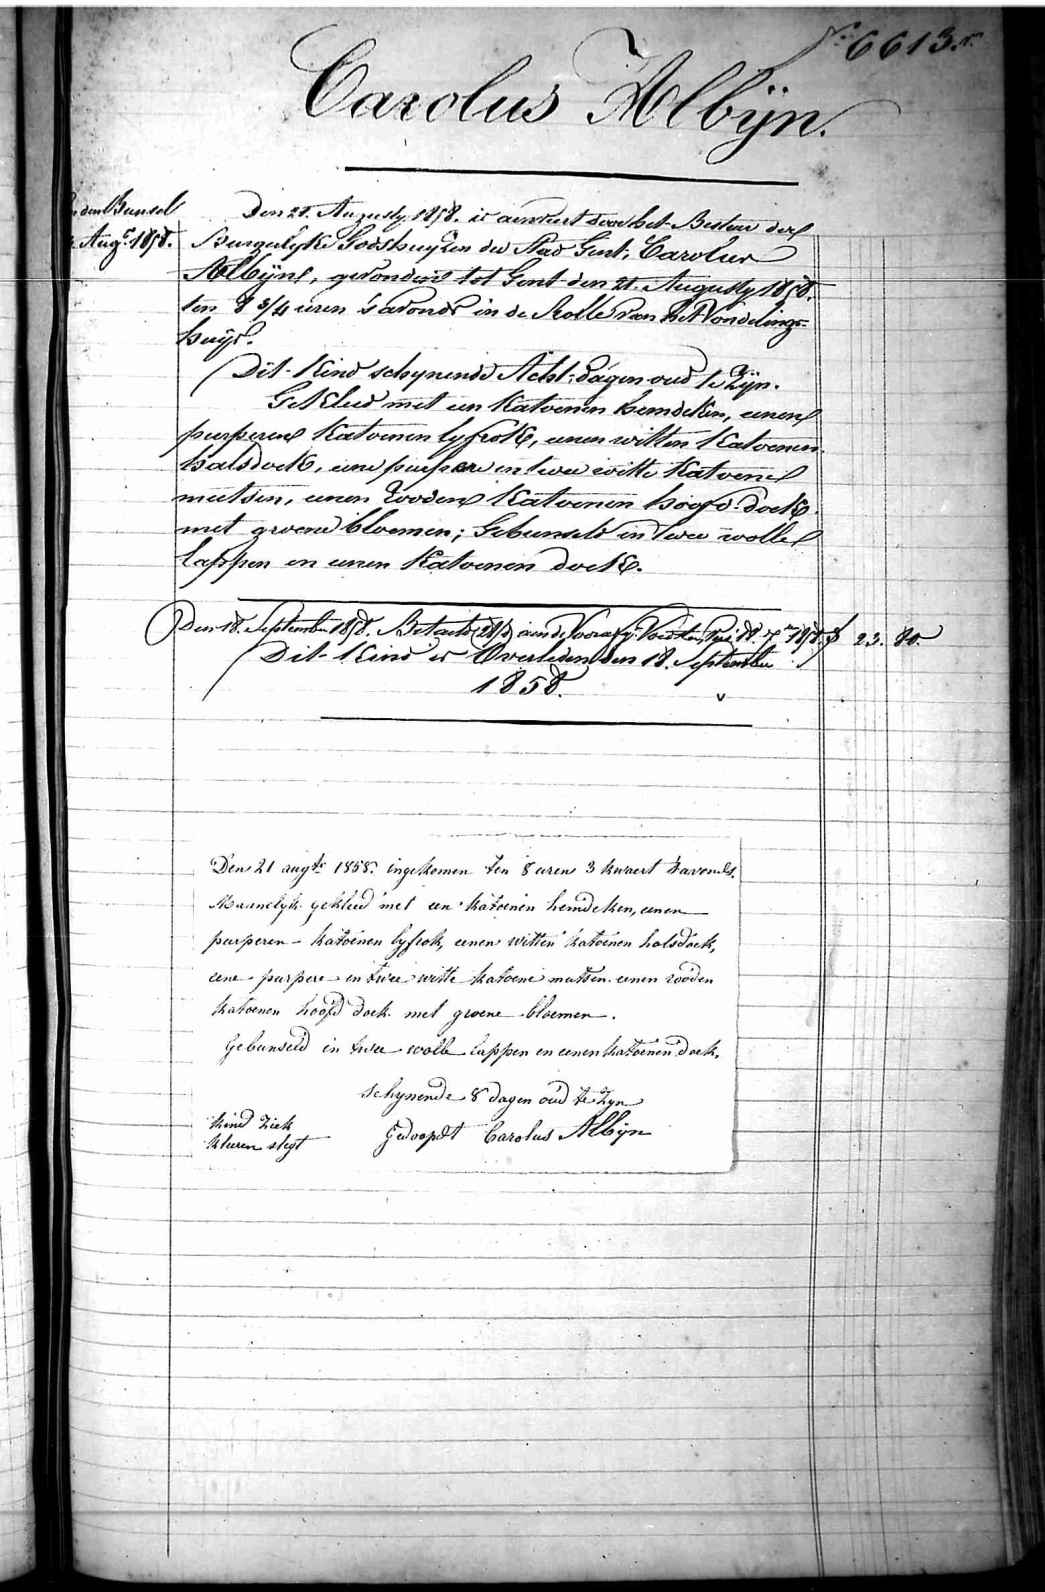 N.o 6613.r
Carolus Albijn.
den Bunsel
Aug.t 1858.
Den 21. Augusty 1858. is aenveert door het Bestuer der
Burgelyke Godshuyzen der Stad Gent, Carolus
Albijn, gevonden tot Gent den 21. Augusty 1858.
ten 8 3/4 uren 's avonds in de Rolle van het Vondelings-
huijs.
Dit Kind schynende Acht dagen oud te Zijn.
Gekleed met een Katoenen hemdeken, eenen
purperen Katoenen lyfrok, eenen witten Katoenen
halsdoek, eene purpere en twee witte Katoene
mutsen, eenen Rooden Katoenen hoofd-doek
met groene bloemen; Gebunseld in twee wolle
lappen en eenen Katoenen doek.
Den 18. September 1858. Betaeld aen de 1858. 23. 80.
Dit Kind is Overleden den 18. September
1858.
Den 21 augts. 1858. ingekomen ten 8 uren 3 kwaert 's avonds.
Mannelyk gekleed met een katoenen hemdeken, eenen
purperen katoenen lyfrok, eenen witten katoenen halsdoek,
eene purpere en twee witte katoene mutsen eenen rooden
katoenen hoofd doek met groene bloemen.
Gebunseld in twee wolle lappen en eenen katoenen doek.
schynende 8 dagen oud te zyn
kind ziek
kleuren slegt
gedoopt Carolus Albijn